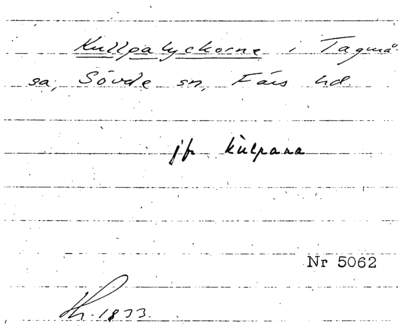 Kullpalyckorne i Tagmå-
sa, Sövde sn, Färs hd
jfr kulpana
Nr 5062
1833.